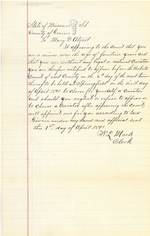 State of Missouri } SS
County of Greene
To Mary E.
It appearing to the Court that you
are a minor over the age of fourteen years and
that you are without any legal or natural Curator
you are therefore notified to appear before the Probate
Court of said County on the day of the next term
thereof to be held at Springfield on the day
of April 1890 to choose for yourself a Curator
and should you neglect or refuse to appear or
to choose a Curator after appearing the Court
will appoint one for you according to law
Given under my hand and official seal
this 1st day of April 1890
Clerk